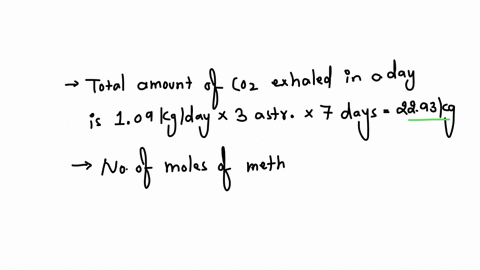 → Total amount of CO2 exhaled in a day
is 1.09 kg/day × 3 astr. × 7 days = 22.93 kg
→ No. of moles of meth